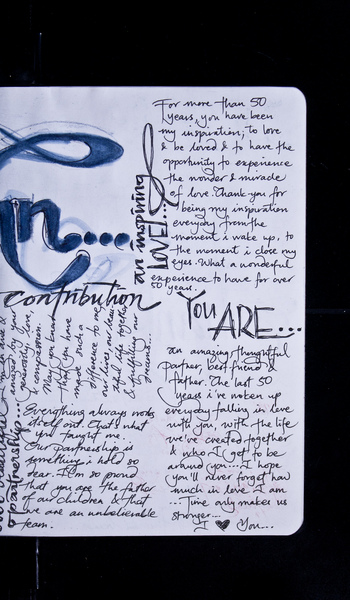 For more than 50
years, you have been
my inspiration; to love
& be loved & to have the
opportunity to experience
the wonder & miracle
of love. Thank-you for
being my inspiration
everyday from the
moment i wake up, to
the moment i close my
eyes. What a wonderful
experience to have for over
50 years.
an inspiring
LOVE!...
n....
contribution
You
ARE...
an amazing, thoughtful
partner, best friend &
father. The last 50
years i've woken up
everyday falling in love
with you, with the life
we've created together
& who I get to be
around you.... I hope
you'll never forget how
much in love I am
... Time only makes us
stronger...
I ♥ You...
amazed by your
generosity, love,
& compassion.
May you know
that you have
made such a
difference to me
our lives, our
life together
& fulfilling our
dreams...
partnership...
Everything always works
itself out. That's what
you taught me.
Our partnership is
something i hold so
dear. I'm so proud
that you are the father
of our children & that
we are an unbelievable
team.